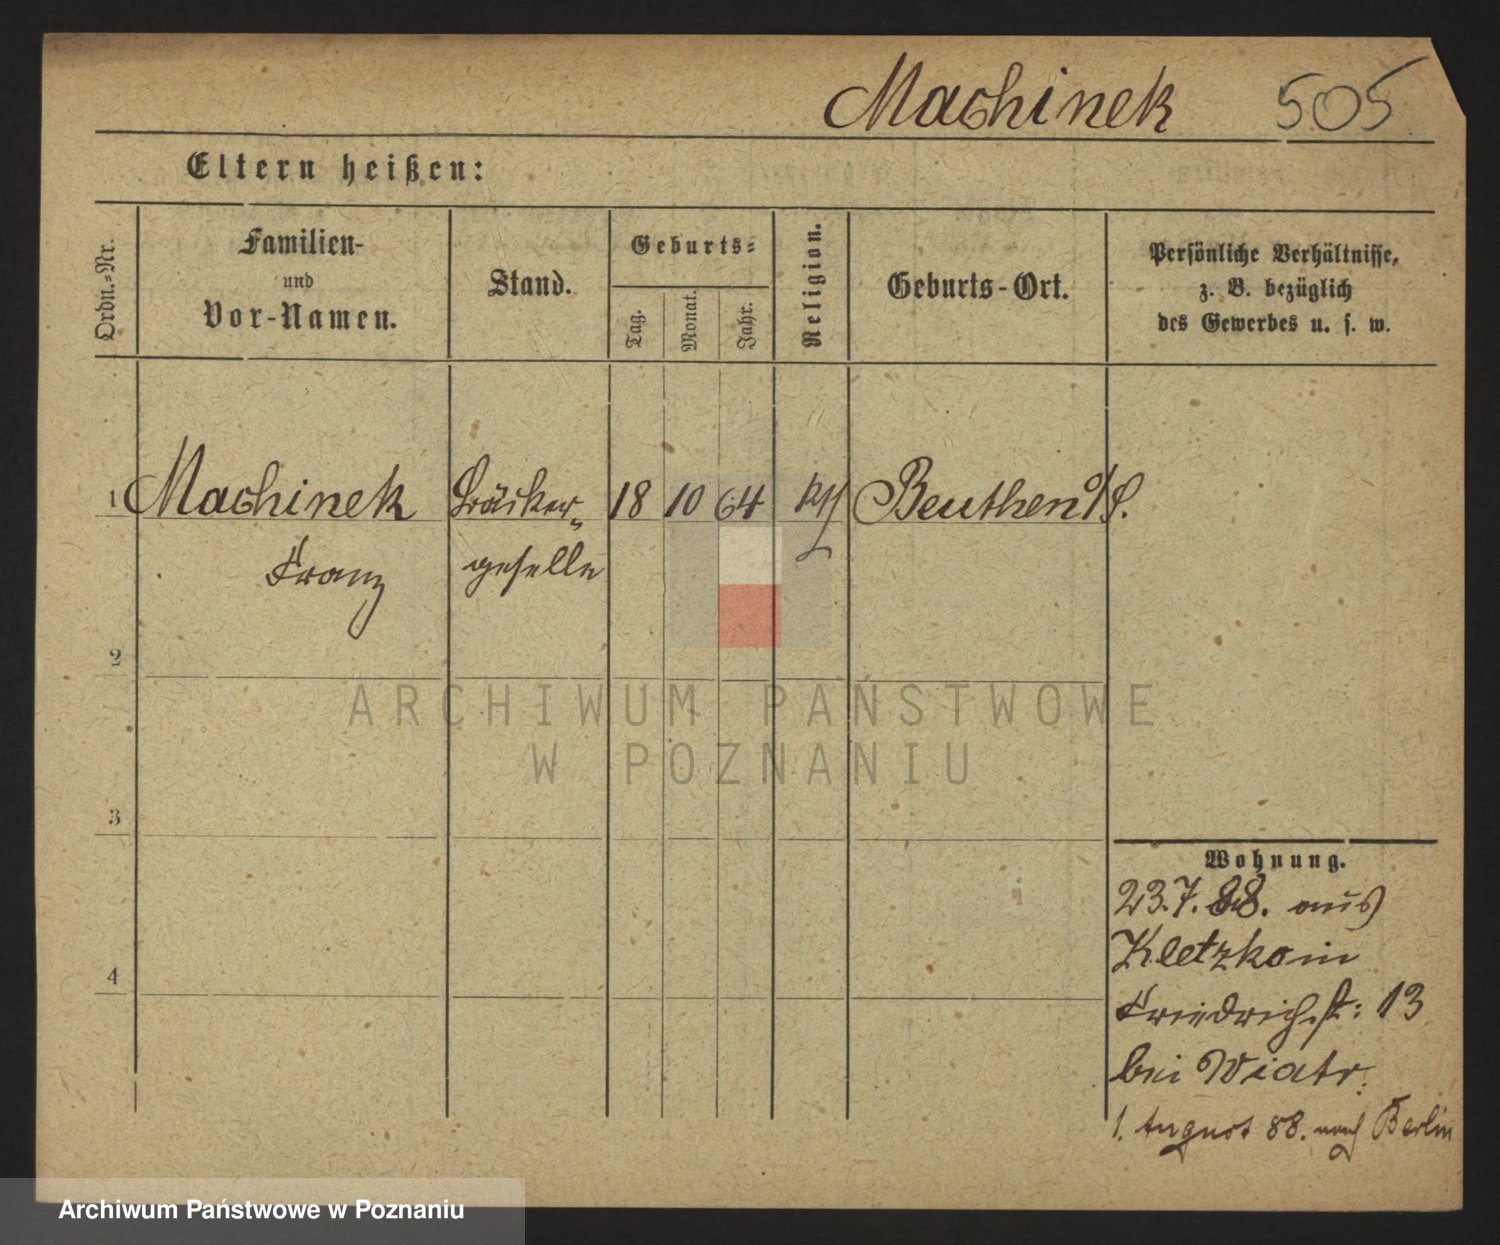 Machinek 505
Eltern heißen:
Ordn.-Nr.
Familien-
und
Vor-Namen.
Stand.
Geburts-
Tag.
Monat.
Jahr.
Religion.
Geburts-Ort.
Persönliche Verhältnisse,
z. B. bezüglich
des Gewerbes u. s. w.
1 Machinek Bäcker- 18 10 64 Beuthen O/S.
Franz geselle
2
3
4
ARCHIWUM PAŃSTWOWE
W POZNANIU
Wohnung.
23.7.88. aus
Kletzko in
Friedrichst: 13
bei Wiatr.
1. August 88. nach Berlin
Archiwum Państwowe w Poznaniu